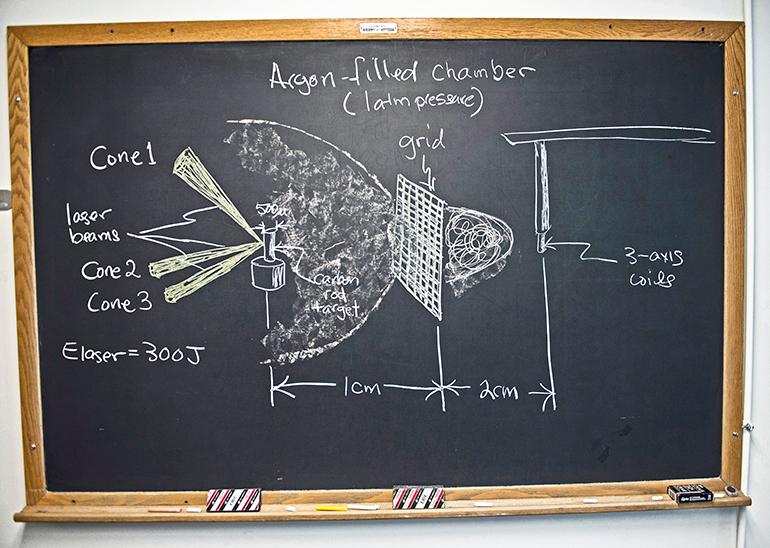 Argon-filled chamber
(1atm pressure)
grid
Cone 1
laser
beams
Cone 2
Cone 3
carbon
rod
target
3-axis
coils
Elaser = 300J
1cm
2cm